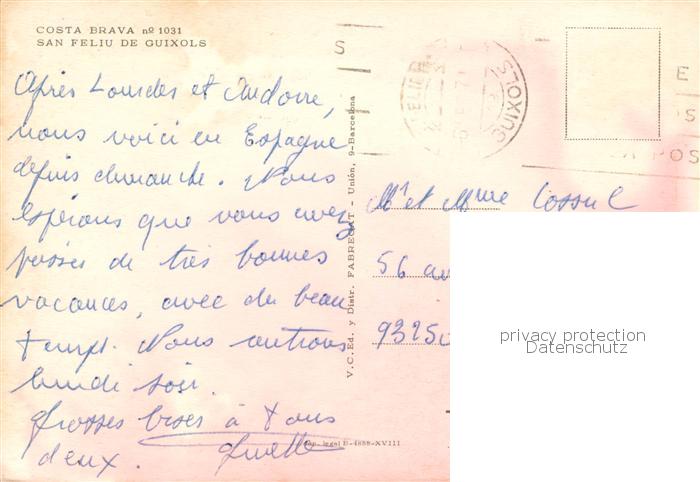 COSTA BRAVA nº 1031
SAN FELIU DE GUIXOLS
Après Lourdes et Andorre,
nous voici en Espagne
depuis dimanche. Nous
espérons que vous avez
passés de très bonnes
vacances, avec du beau
temps. Nous rentrons
lundi soir.
Grosses bises à tous
deux.
V.C. Ed. y Distr. FABREGAT - Unión, 9-Barcelona
Dep. legal B-4888-XVIII
GUIXOLS
Mr et Mme
56 av
93250
privacy protection
Datenschutz